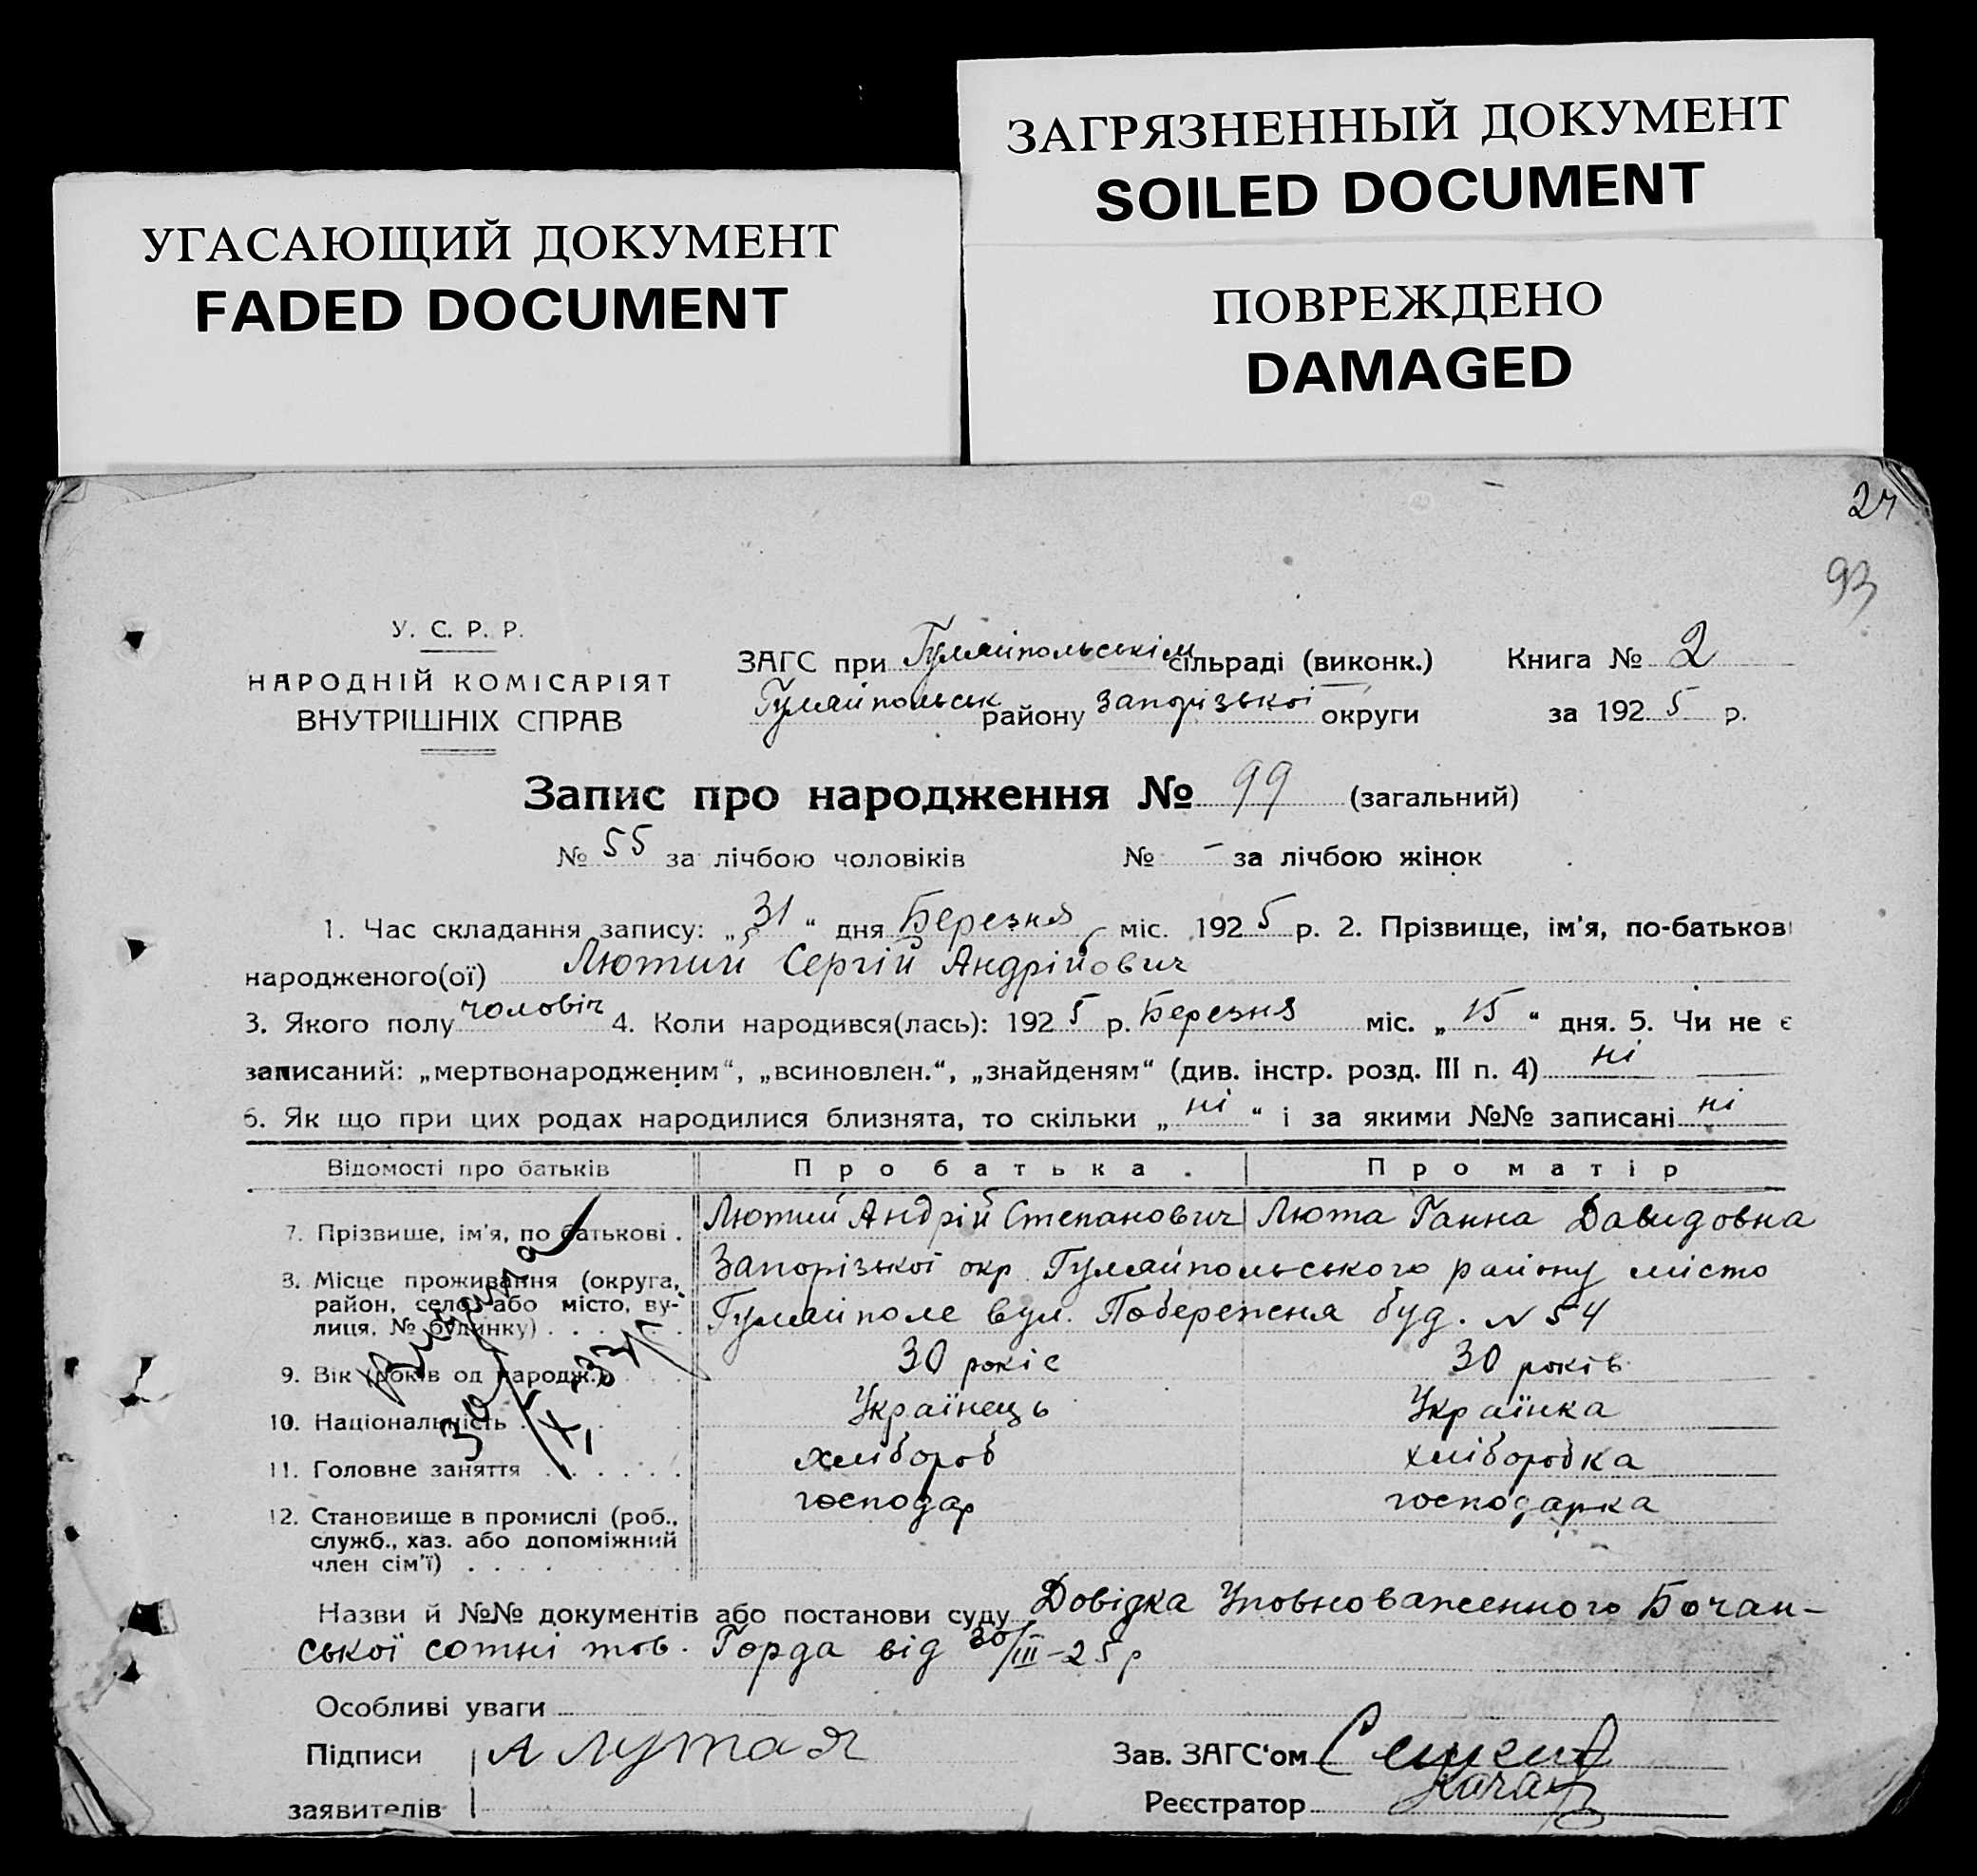 ЗАГРЯЗНЕННЫЙ ДОКУМЕНТ
SOILED DOCUMENT
УГАСАЮЩИЙ ДОКУМЕНТ
FADED DOCUMENT
ПОВРЕЖДЕНО
DAMAGED
24
93
У. С. Р. Р.
НАРОДНІЙ КОМІСАРІЯТ
ВНУТРІШНІХ СПРАВ
ЗАГС при Гуляйпольськім сільраді (виконк.) Книга № 2
Гуляйпольськ району Запорізької округи за 1925 р.
Запис про народження № 99 (загальний)
№ 55 за лічбою чоловіків № - за лічбою жінок
1. Час складання запису: „31“ дня Березня міс. 1925 р. 2. Прізвище, ім'я, по-батькові
народженого(ої) Лютий Сергій Андрійович
3. Якого полу чоловіч 4. Коли народився(лась): 1925 р. Березня міс. „15“ дня. 5. Чи не є
записаний: „мертвонародженим“, „всиновлен.“, „знайденям“ (див. інстр. розд. III п. 4) ні
6. Як що при цих родах народилися близнята, то скільки „ні“ і за якими №№ записані ні
Відомості про батьків Про батька. Про матір
7. Прізвише, ім'я, по батькові . Лютий Андрій Степанович Люта Ганна Давидовна
8. Місце проживання (округа, район, село або місто, вулиця, № будинку) . . . Запорізької окр Гуляйпольського району місто
Гуляйполе вул. Побережня буд. № 54
9. Вік (років од народж.) . . . 30 років 30 років
10. Національність . . . Українець Українка
11. Головне заняття . . . . . . хлібороб хліборобка
12. Становище в промислі (роб., господар господарка
служб., хаз. або допоміжний
член сім'ї) . . . .
Назви й №№ документів або постанови суду Довідка Уповноваженного Бочан-
ської сотні тов. Горда від 30/III-25р
Особливі уваги
Підписи А Лутая Зав. ЗАГС‘ом
заявителів Реєстратор